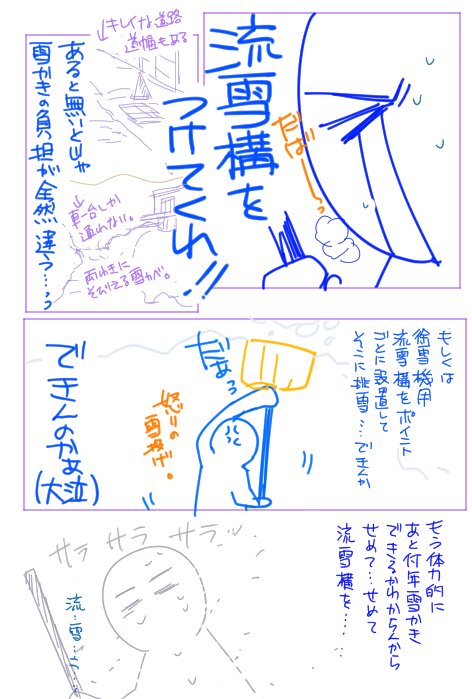 流雪構を
つけてくれ!!
だばーっ
↙キレイな道路
道幅もある
あると無いとじゃ
雪かきの負担が全然違う…っ
↓
車一台しか
通れない。
両わきに
そびえる雪かべ。
もしくは
除雪機用
流雪構をポイント
ごとに設置して
そこに排雪…できんか
だぁっ
怒りの
雪投げ。
できんのかぁ
(大泣)
もう体力的に
あと何年雪かき
できるかわからんから
せめて…せめて
流雪構を…
サラ サラ サラッ
流…雪…